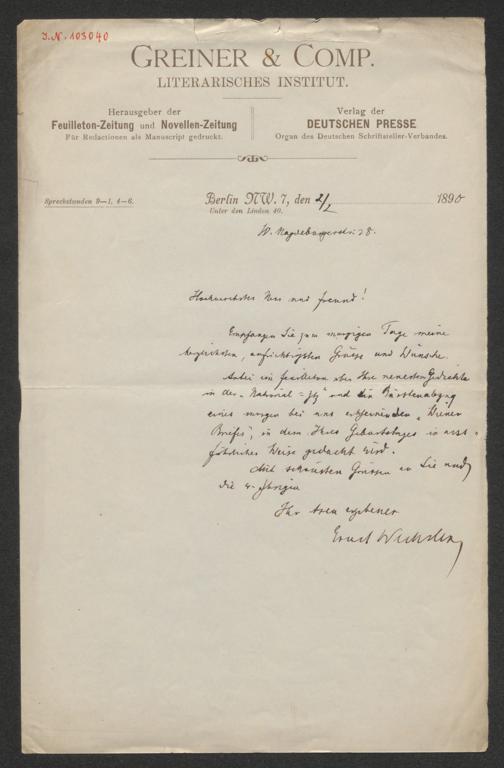 J.N. 103040
GREINER & COMP.
LITERARISCHES INSTITUT.
Herausgeber der
Feuilleton-Zeitung und Novellen-Zeitung
Für Redactionen als Manuscript gedruckt.
Verlag der
DEUTSCHEN PRESSE
Organ des Deutschen Schriftsteller-Verbandes.
Sprechstunden 9–1, 4–6.
Berlin NW. 7, den 2/2 1890
Unter den Linden 40.
W. Magdeburgerstr. 28.
Hochverehrter Herr und Freund!
Empfangen Sie zum morgigen Tage meine
herzlichsten, aufrichtigsten Grüsse und Wünsche.
Anbei ein Feuilleton über Ihre neuesten Gedichte
in der „National-Ztg" und ein Bürstenabzug
eines morgen bei uns erscheinenden „Wiener
Briefes", in dem Ihres Geburtstages in
Weise gedacht wird.
Mit schönsten Grüssen an Sie und
die
Ihr treu ergebener
Ernst Wechsler